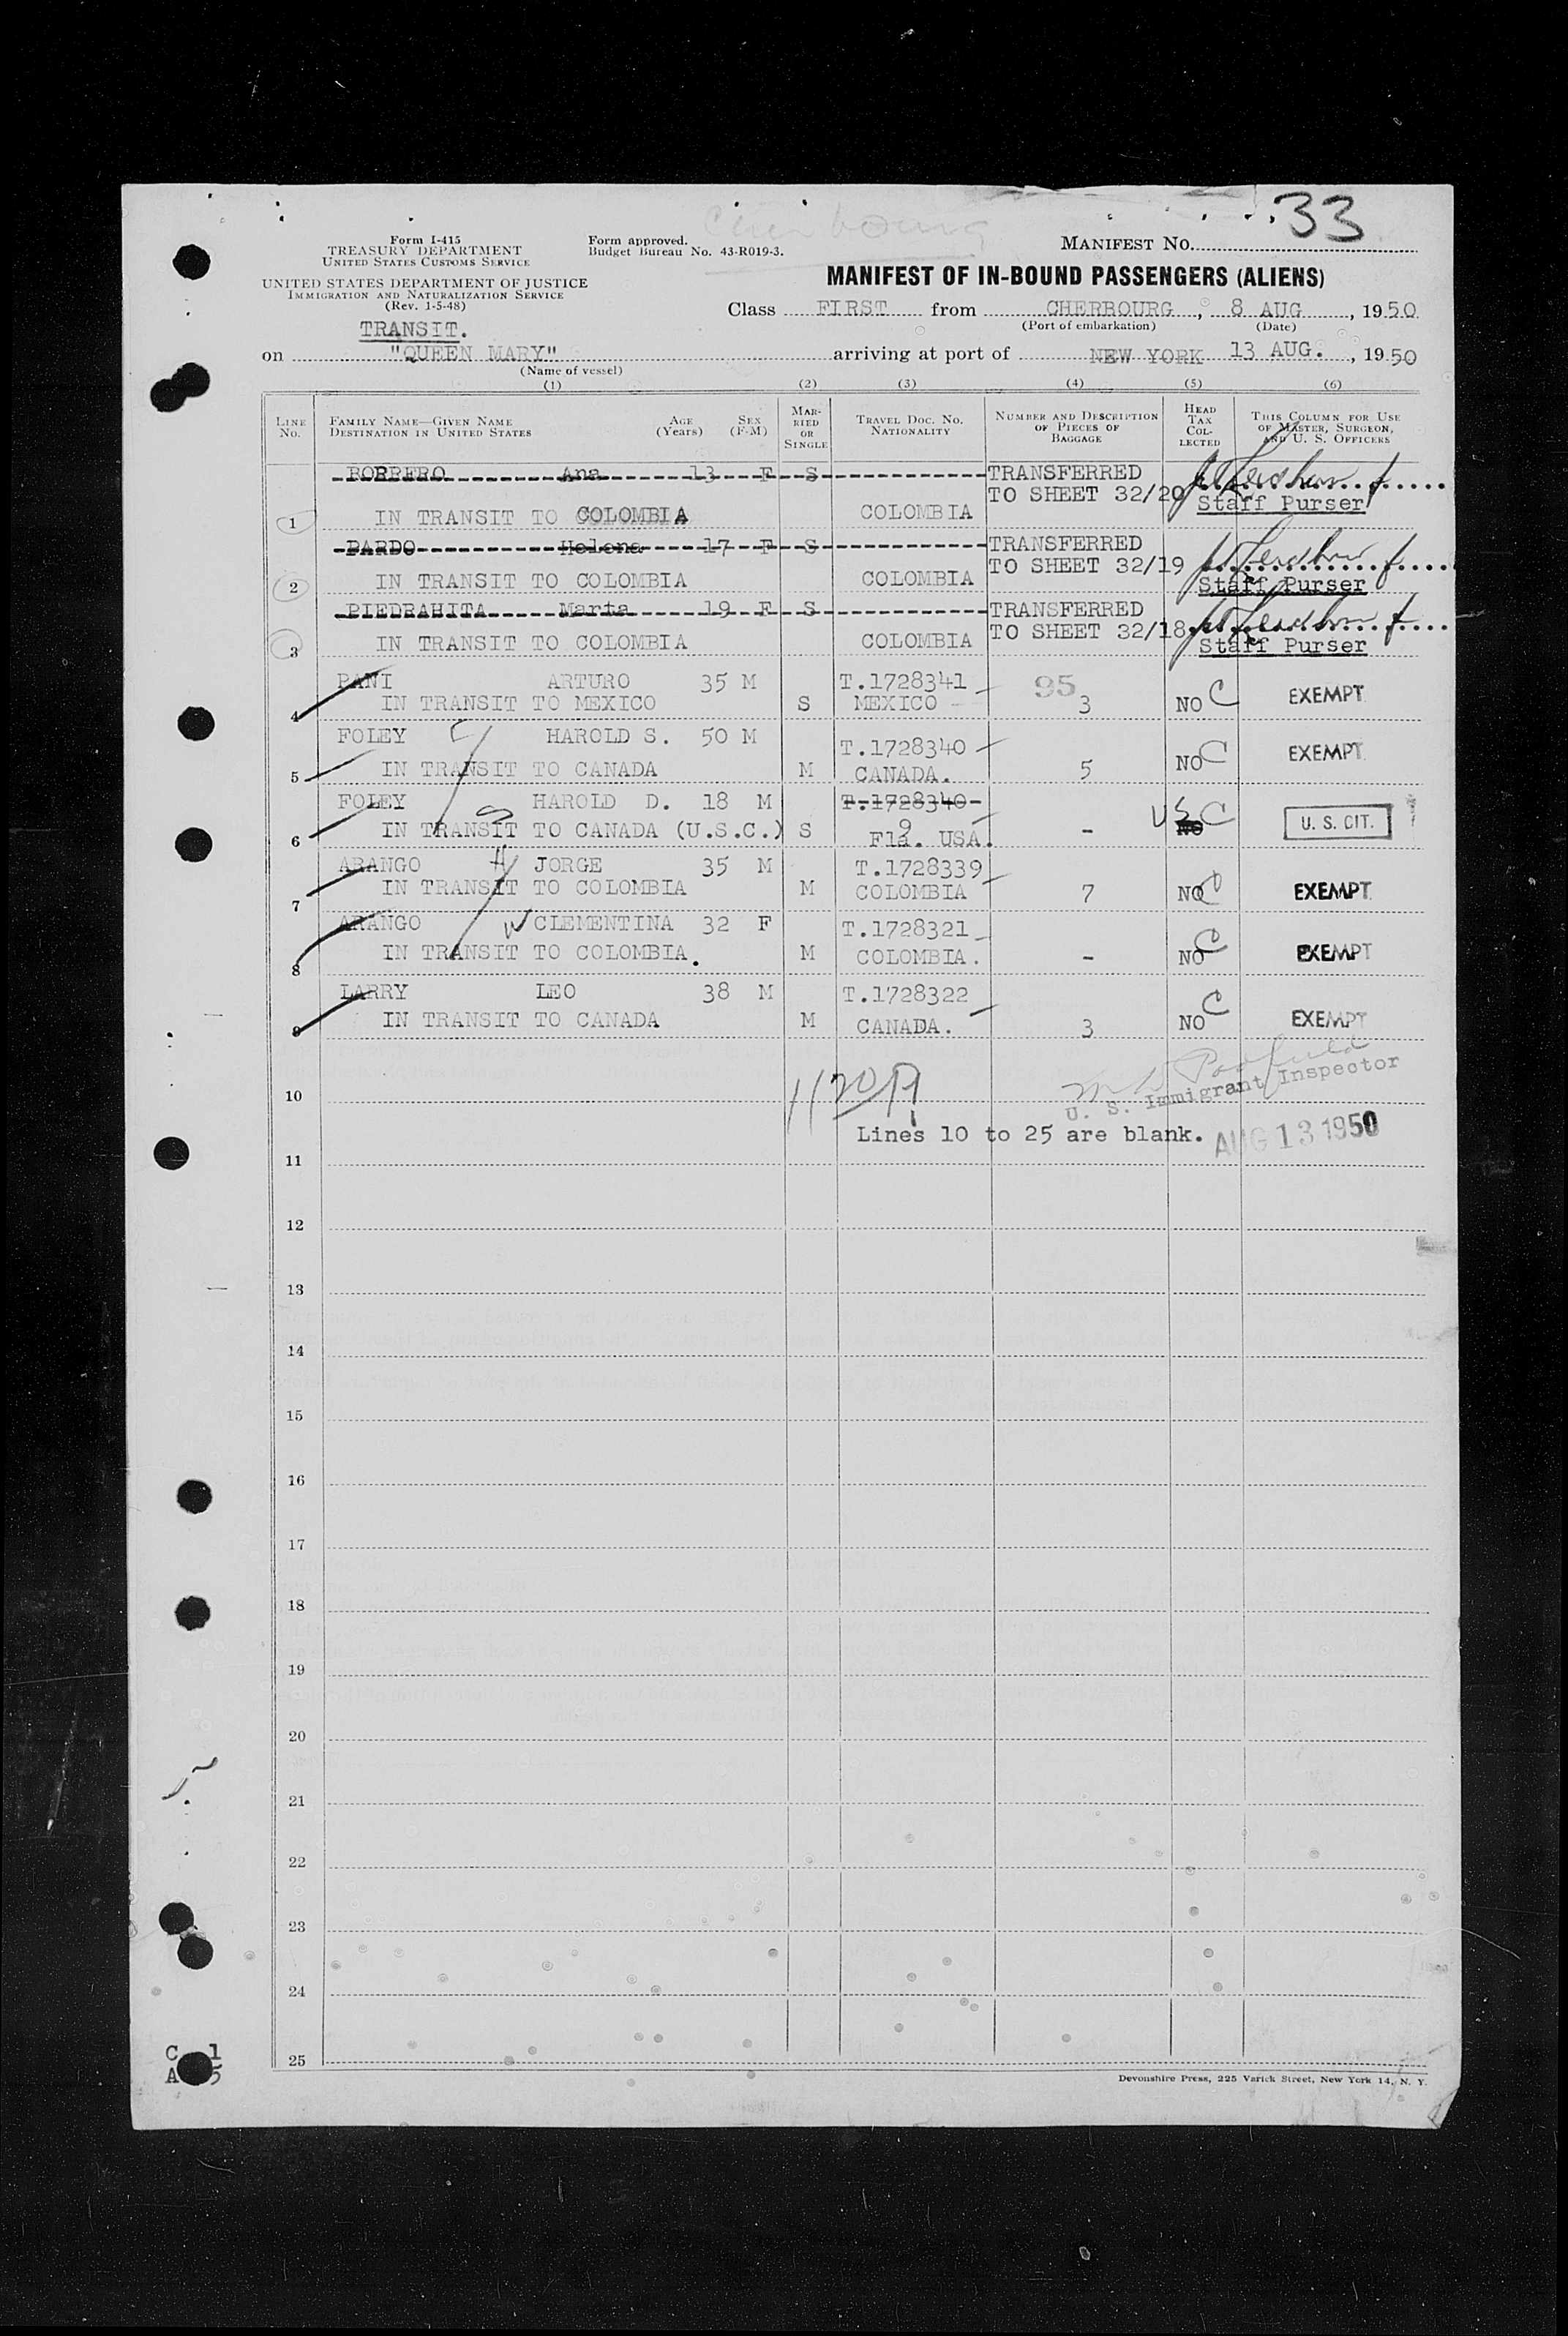 Cherbourg
33
Form I-415
TREASURY DEPARTMENT
UNITED STATES CUSTOMS SERVICE
Form approved.
Budget Bureau No. 43-R019-3.
MANIFEST NO.
UNITED STATES DEPARTMENT OF JUSTICE
IMMIGRATION AND NATURALIZATION SERVICE
(Rev. 1-5-48)
MANIFEST OF IN-BOUND PASSENGERS (ALIENS)
Class FIRST from CHERBOURG, 8 AUG, 1950
(Port of embarkation) (Date)
TRANSIT.
on "QUEEN MARY" arriving at port of NEW YORK 13 AUG., 1950
(Name of vessel)
(1) (2) (3) (4) (5) (6)
LINE No.
FAMILY NAME—GIVEN NAME
DESTINATION IN UNITED STATES
AGE (Years)
SEX (F-M)
MARRIED OR SINGLE
TRAVEL DOC. NO.
NATIONALITY
NUMBER AND DESCRIPTION OF PIECES OF BAGGAGE
HEAD TAX COLLECTED
THIS COLUMN FOR USE OF MASTER, SURGEON, AND U. S. OFFICERS
BORRERO Ana 13 F S TRANSFERRED
TO SHEET 32/20
Staff Purser
1 IN TRANSIT TO COLOMBIA COLOMBIA
PARDO Helena 17 F S TRANSFERRED
TO SHEET 32/19
2 IN TRANSIT TO COLOMBIA COLOMBIA Staff Purser
PIEDRAHITA Marta 19 F S TRANSFERRED
TO SHEET 32/18
3 IN TRANSIT TO COLOMBIA COLOMBIA Staff Purser
PANI ARTURO 35 M T.1728341 95
4 IN TRANSIT TO MEXICO S MEXICO 3 NO C EXEMPT
FOLEY HAROLD S. 50 M T.1728340
5 IN TRANSIT TO CANADA M CANADA. 5 NO C EXEMPT
FOLEY S HAROLD D. 18 M T.1728340
6 IN TRANSIT TO CANADA (U.S.C.) S Fla. USA. - NO US C U. S. CIT.
9
ARANGO H JORGE 35 M T.1728339
7 IN TRANSIT TO COLOMBIA M COLOMBIA 7 NO C EXEMPT
ARANGO W CLEMENTINA 32 F T.1728321
8 IN TRANSIT TO COLOMBIA. M COLOMBIA. - NO C EXEMPT
LARRY LEO 38 M T.1728322
9 IN TRANSIT TO CANADA M CANADA. 3 NO C EXEMPT
10
U. S. Immigrant Inspector
Lines 10 to 25 are blank.
AUG 13 1950
11
12
13
14
15
16
17
18
19
20
21
22
23
24
25
C 1
A 5
Devonshire Press, 225 Varick Street, New York 14, N. Y.